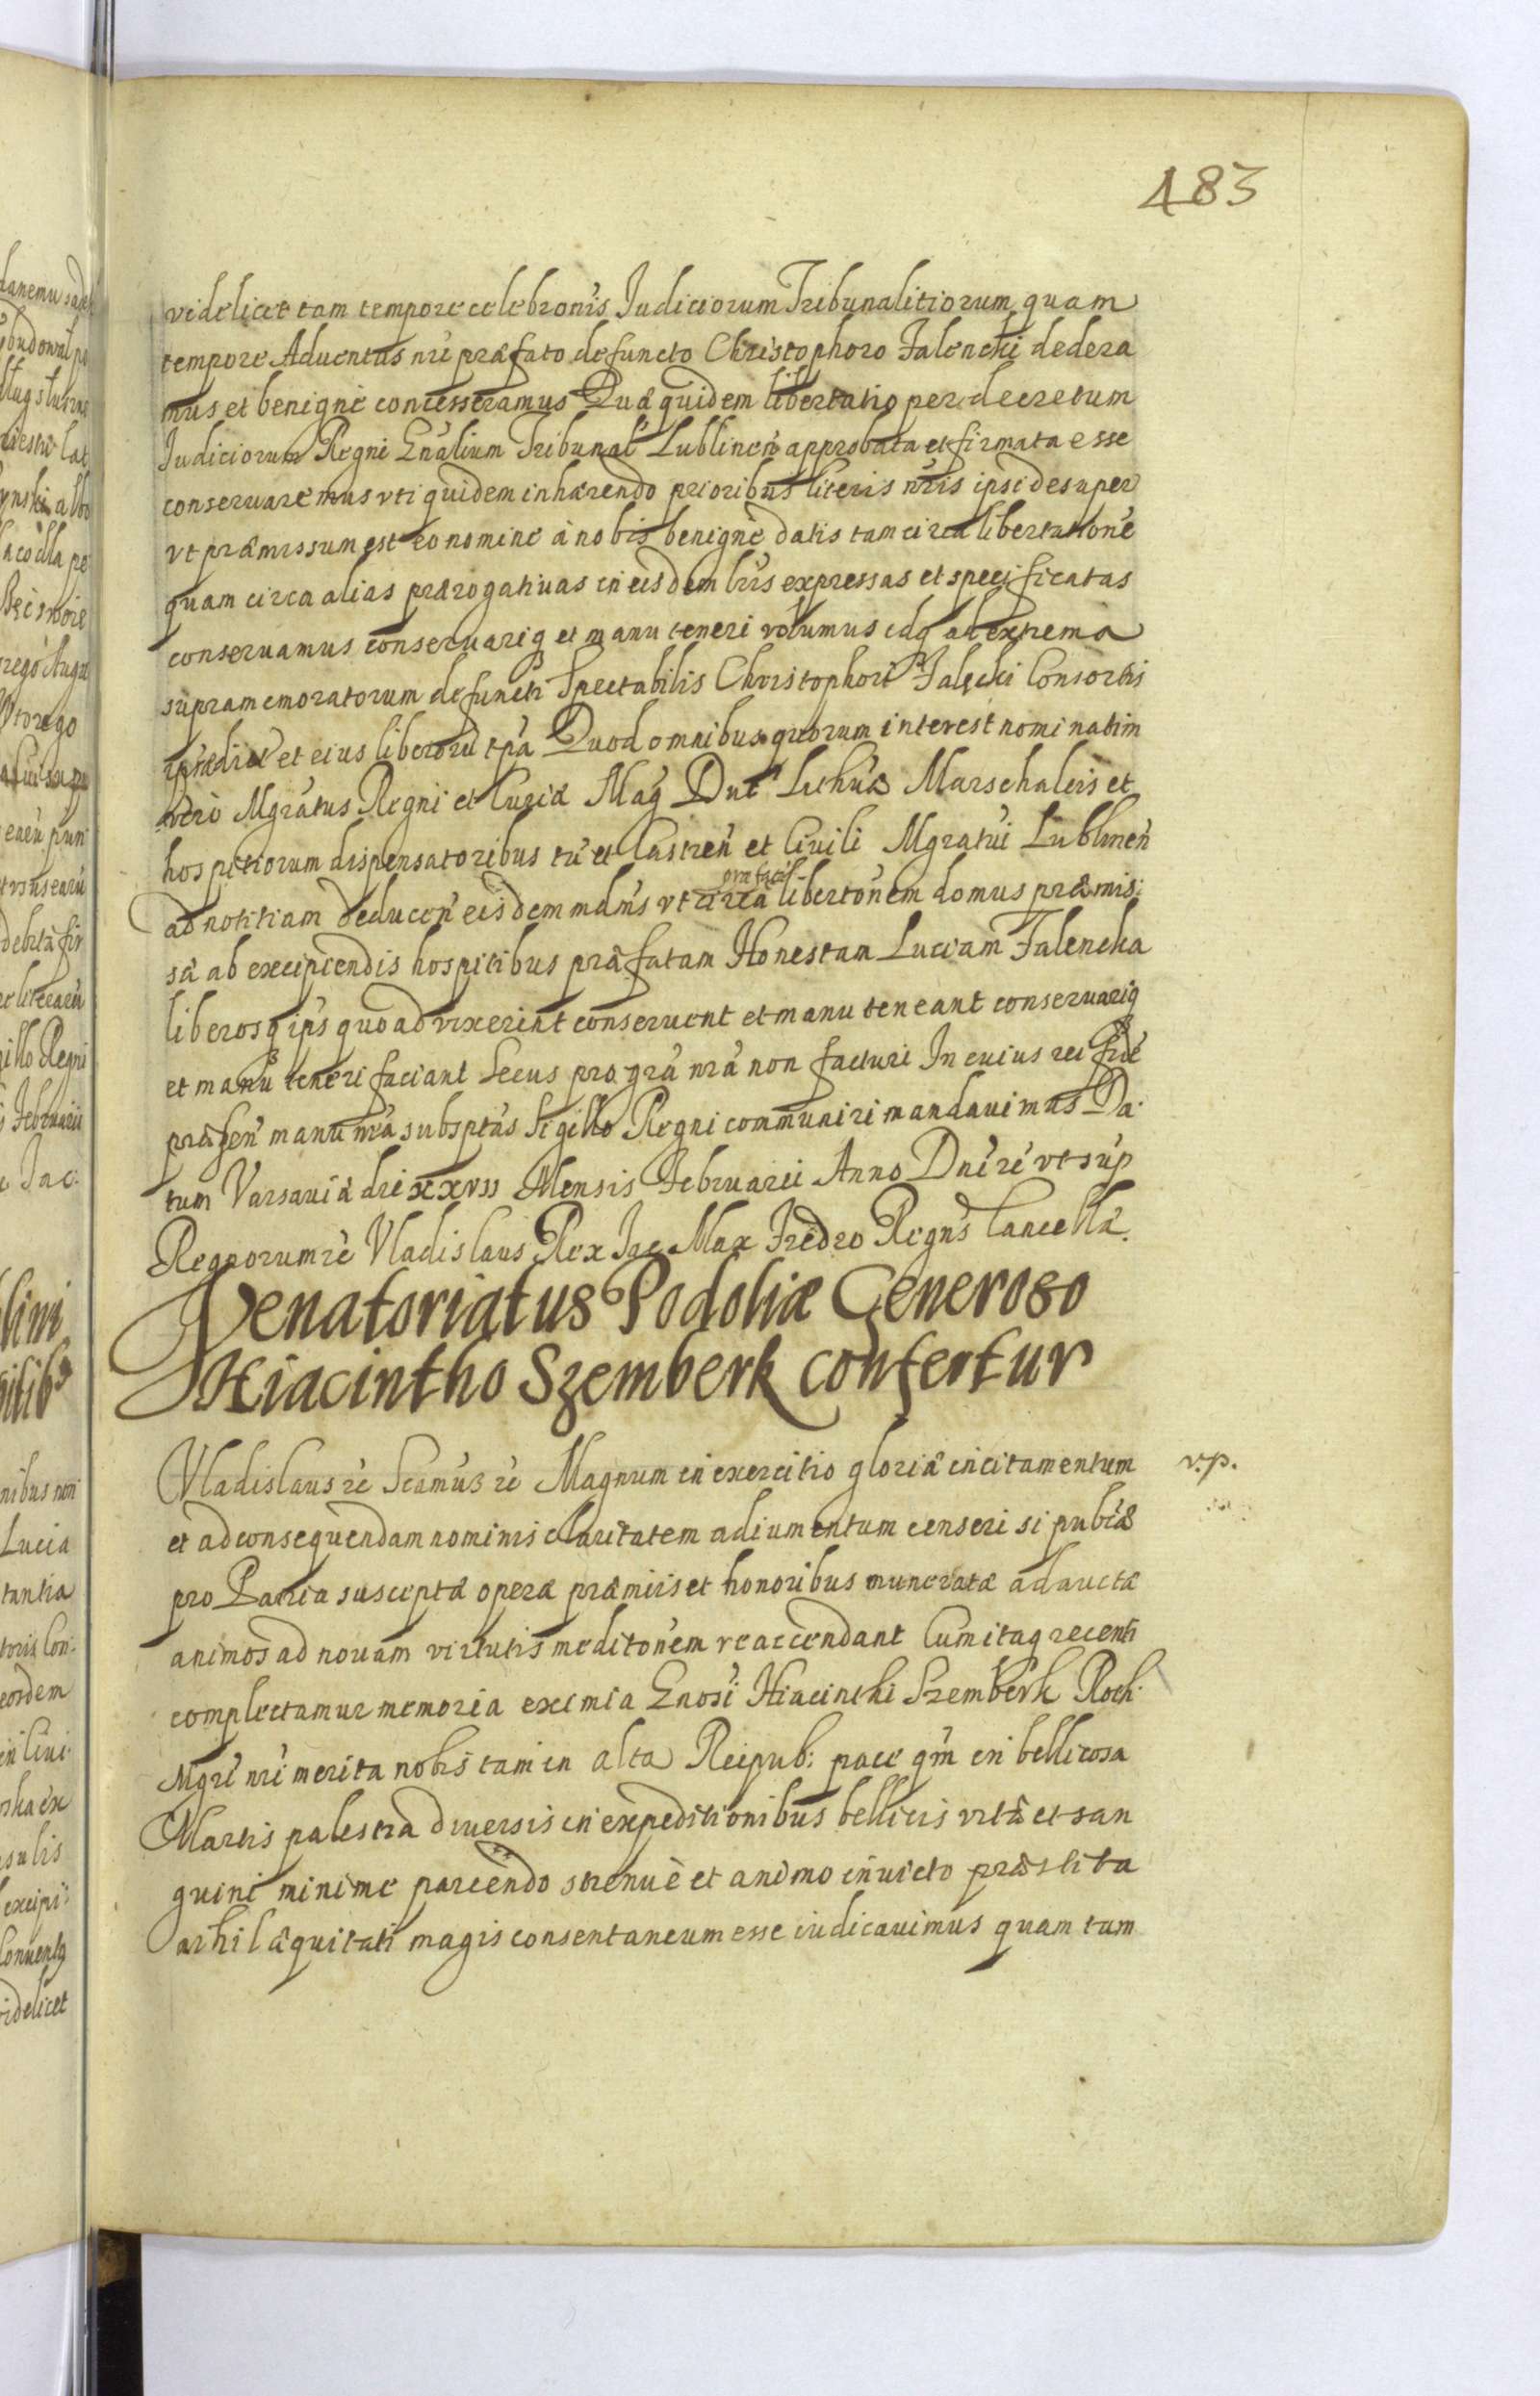 483
videlicet tam tempore celebronis Iudiciorum Tribunalitiorum quam
tempore Aduentus nri præfato defuncto Christophoro Falencki dedera
mus et benignè concesseramus Quæ quidem libertatio per decretum
Iudiciorum Regni Gnalium Tribunal Lublinen approbata et firmata esse
conseruaremus vti quidem inhærendo prioribus literis nris ipsi desuper
vt præmissum est eo nomine à nobis benignè datis tam circa libertatione
quam circa alias prærogatiuas in eisdem lris expressas et specificatas
conseruamus conseruariq et manu teneri volumus idq ad extrema
supramemoratorum defuncti Spectabilis Christophori Falęcki Consortis
prædict et eius liberorū tpa Quod omnibus quorum interest nominatim
verò Mgratus Regni et Curiæ Mag Duc Lithuæ Marschaleis et
hospitiorum dispensatoribus tū et Castren et Ciuili Mgratui Lublinen
ad notitiam deducen eisdem mdmus vt circa præfact libertonem domus præmis
sæ ab excipiendis hospitibus præfatam Honestam Luciam Falencka
liberosq ipius quoad vixerint conseruent et manu teneant conseruariq
et manu teneri faciant Secus pro gra nra non facturi In cuius rei fidē
præsen manu nra subsptas Sigillo Regni communiri mandauimus Da
tum Varsauiæ die xxvii Mensis Februarii Anno Dni rē vt sup
Regnorum rē Vladislaus Rex Jac Max Fredro Regns Cancellæ.
Venatoriatus Podoliæ Generoso
Hiacintho Szemberk confertur
v.p.
Vladislaus rē Scamus rē Magnum in exercitio gloriæ incitamentum
et ad consequendam nominis claritatem adiumentum censeri si publcæ
pro Patria susceptæ operæ præmiis et honoribus muneratæ adauctæ
animos ad nouam virtutis meditonem reaccendant Cum itaq recenti
complectamur memoria eximia Gnosi Hiacinthi Szemberk Roth
Mgri nri merita nobis tam in alta Reipub: pace qm in bellicosa
Martis palestra diuersis in expeditionibus bellicis vitæ et san
guini minime parcendo strenuè et animo inuicto præstita
nihil æquitati magis consentaneum esse iudicauimus quam tum